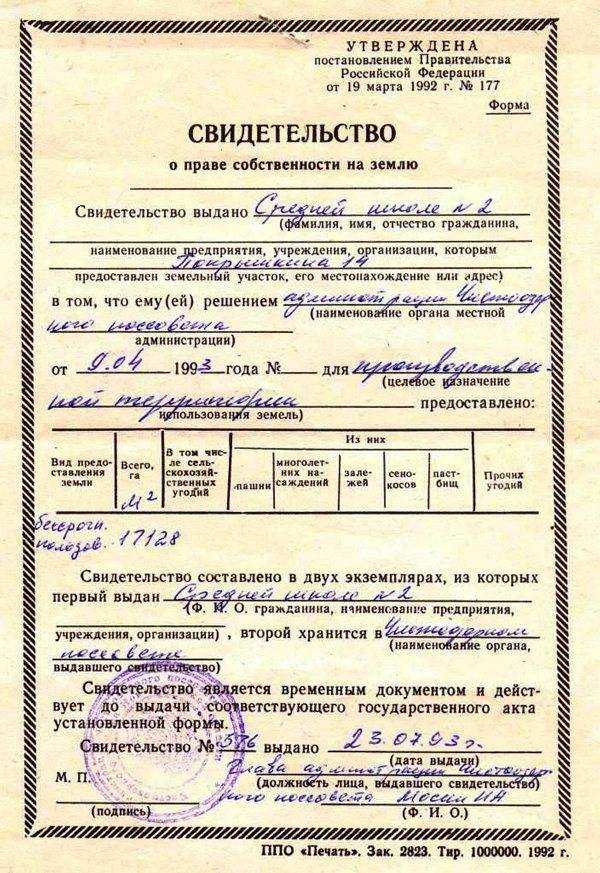 УТВЕРЖДЕНА
постановлением Правительства
Российской Федерации
от 19 марта 1992 г. № 177
Форма
СВИДЕТЕЛЬСТВО
о праве собственности на землю
Свидетельство выдано Средней школе №2
(фамилия, имя, отчество гражданина,
наименование предприятия, учреждения, организации, которым
Покрышкина 14
предоставлен земельный участок, его местонахождение или адрес)
в том, что ему(ей) решением администрации Чистоозер
(наименование органа местной
ного поссовета
администрации)
от 9.04 1993 года № для производствен-
(целевое назначение
ной территории предоставлено:
использования земель)
Вид предо-
ставления
земли
Всего,
га
м2
В том чис-
ле сель-
скохозяй-
ственных
угодий
Из них
пашни
многолет-
них на-
саждений
зале-
жей
сено-
косов
паст-
бищ
Прочих
угодий
бессрочн.
пользов. 17128
Свидетельство составлено в двух экземплярах, из которых
первый выдан Средней школе №2
(Ф. И. О. гражданина, наименование предприятия,
учреждения, организации) , второй хранится в Чистоозерном
(наименование органа,
поссовете
выдавшего свидетельство)
Свидетельство является временным документом и дейст-
вует до выдачи соответствующего государственного акта
установленной формы.
Свидетельство № 576 выдано 23.07.93г.
(дата выдачи)
Глава администрации Чистоозер
М. П.
(должность лица, выдавшего свидетельство)
ного поссовета Мосин
(подпись)
(Ф. И. О.)
ППО «Печать». Зак. 2823. Тир. 1000000. 1992 г.